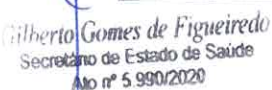 Gilberto Gomes de Figueiredo
Secretário de Estado de Saúde
Ato nº 5.990/2020